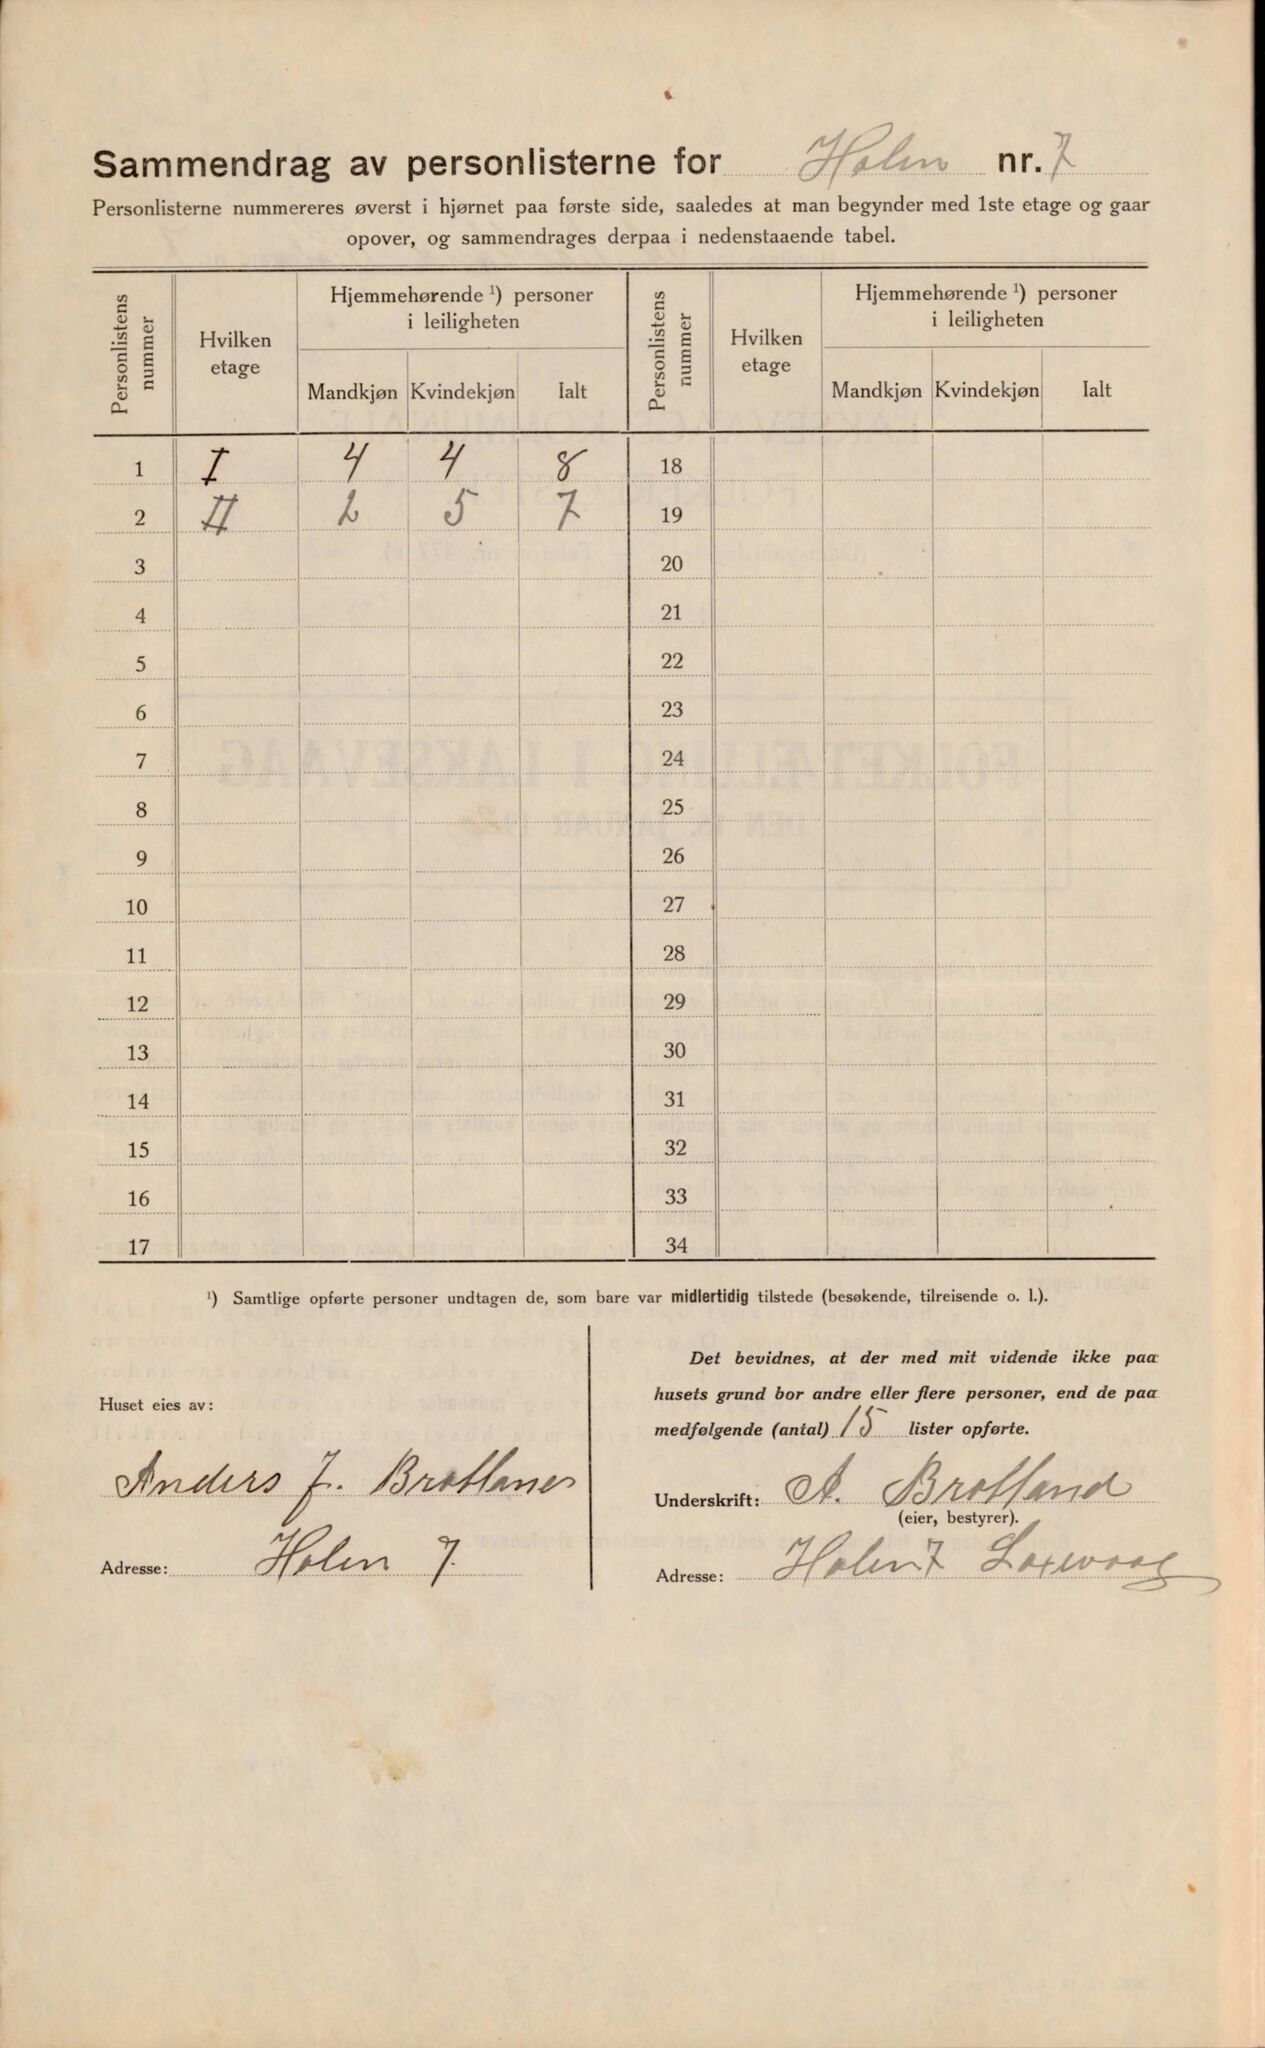 Sammendrag av personlisterne for Holen nr. 7
Personlisterne nummereres øverst i hjørnet paa første side, saaledes at man begynder med 1ste etage og gaar
opover, og sammendrages derpaa i nedenstaaende tabel.
Personlistens nummer | Hvilken etage | Hjemmehørende ¹) personer i leiligheten | Personlistens nummer | Hvilken etage | Hjemmehørende ¹) personer i leiligheten
Mandkjøn | Kvindekjøn | Ialt | Mandkjøn | Kvindekjøn | Ialt
1 I 4 4 8 18
2 II 2 5 7 19
3 20
4 21
5 22
6 23
7 24
8 25
9 26
10 27
11 28
12 29
13 30
14 31
15 32
16 33
17 34
¹) Samtlige opførte personer undtagen de, som bare var midlertidig tilstede (besøkende, tilreisende o. l.).
Huset eies av:
Anders J. Brotland
Adresse: Holen 7.
Det bevidnes, at der med mit vidende ikke paa
husets grund bor andre eller flere personer, end de paa
medfølgende (antal) 15 lister opførte.
Underskrift: A. Brotland
(eier, bestyrer).
Adresse: Holen 7 Laxevaag